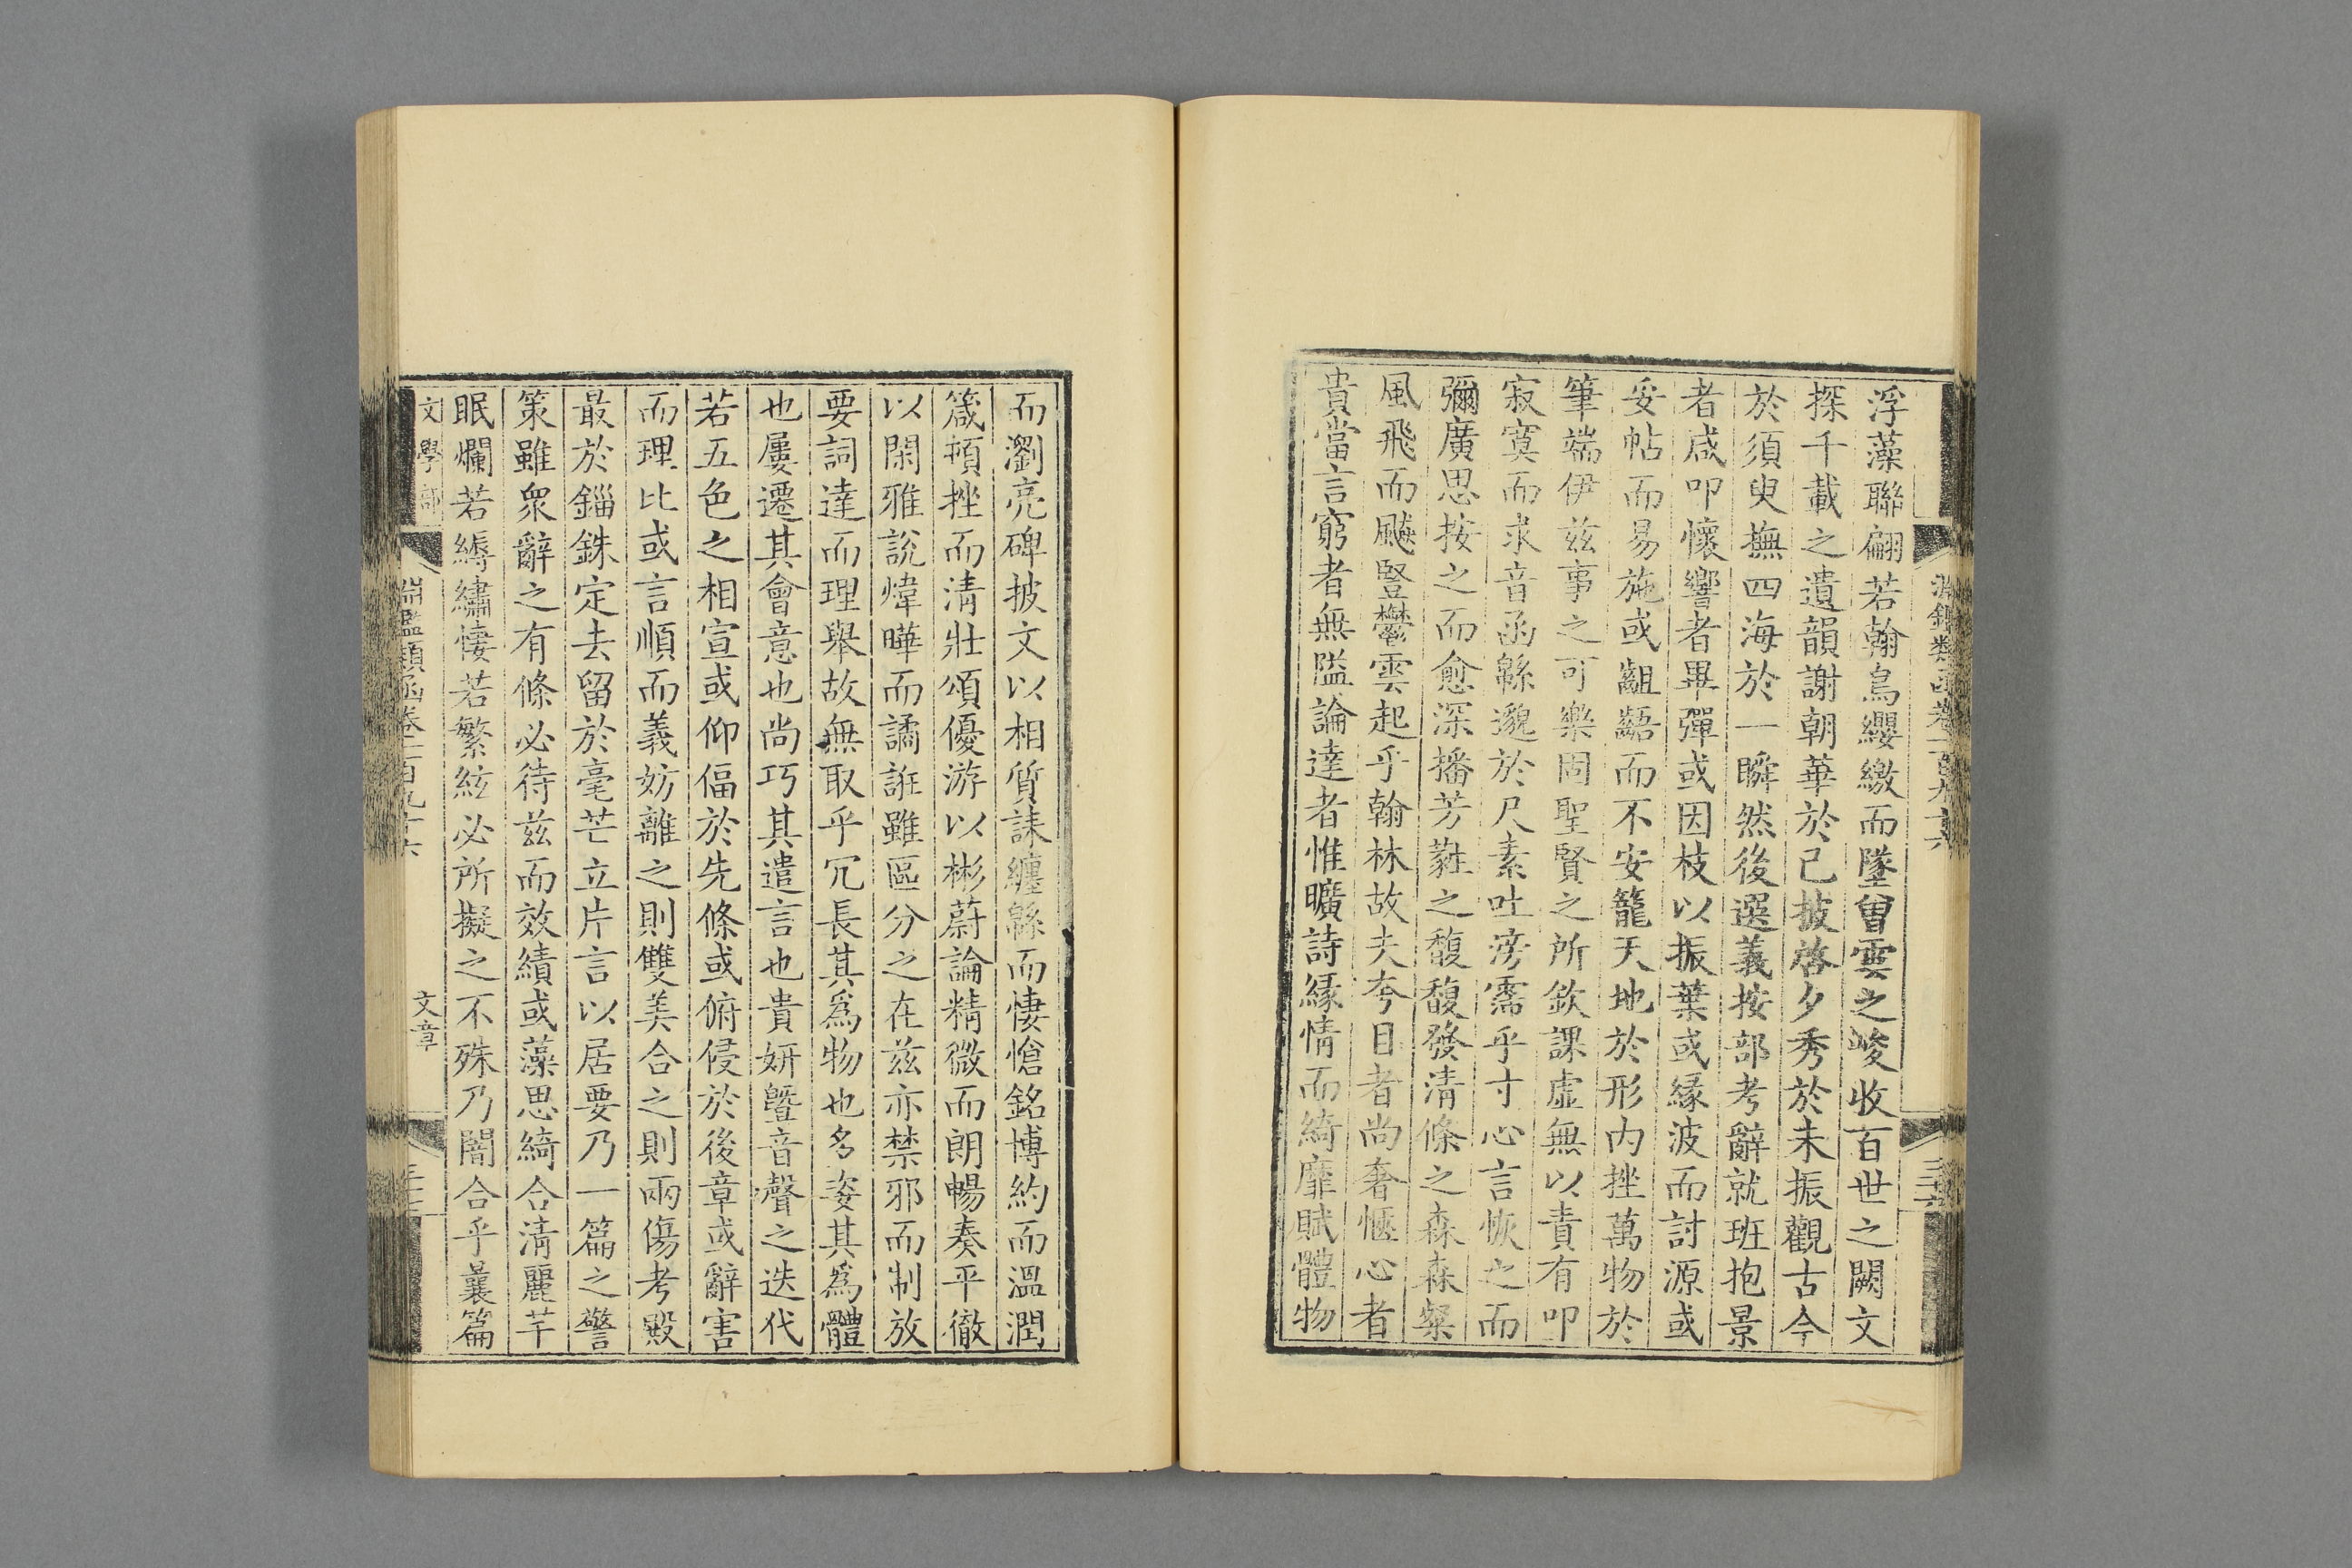 浮藻聯翩若翰鳥纓繳而墜曾雲之峻收百世之闕文
探千載之遺韻謝朝華於已披啓夕秀於未振觀古今
於須臾撫四海於一瞬然後選義按部考辭就班抱景
者咸叩懷響者畢彈或因枝以振葉或緣波而討源或
妥帖而易施或齟齬而不安籠天地於形內挫萬物於
筆端伊兹事之可樂固聖賢之所欽課虛無以責有叩
寂寞而求音函緜邈於尺素吐滂霈乎寸心言恢之而
彌廣思按之而愈深播芳蕤之馥馥發清條之森森粲
風飛而飈豎鬱雲起乎翰林故夫夸目者尚奢愜心者
貴當言窮者無隘論達者惟曠詩緣情而綺靡賦體物
而瀏亮碑披文以相質誄纏緜而悽愴銘博約而溫潤
箴頓挫而清壯頌優游以彬蔚論精微而朗暢奏平徹
以閑雅說煒曄而譎誑雖區分之在兹亦禁邪而制放
要詞達而理舉故無取乎冗長其爲物也多姿其爲體
也屢遷其會意也尚巧其遣言也貴妍曁音聲之迭代
若五色之相宣或仰偪於先條或俯侵於後章或辭害
而理比或言順而義妨離之則雙美合之則兩傷考殿
最於錙銖定去留於毫芒立片言以居要乃一篇之警
策雖衆辭之有條必待兹而效績或藻思綺合清麗芊
眠爛若縟繡悽若繁絃必所擬之不殊乃闇合乎曩篇
文學部
淵鑑類函卷一百九十六
文章